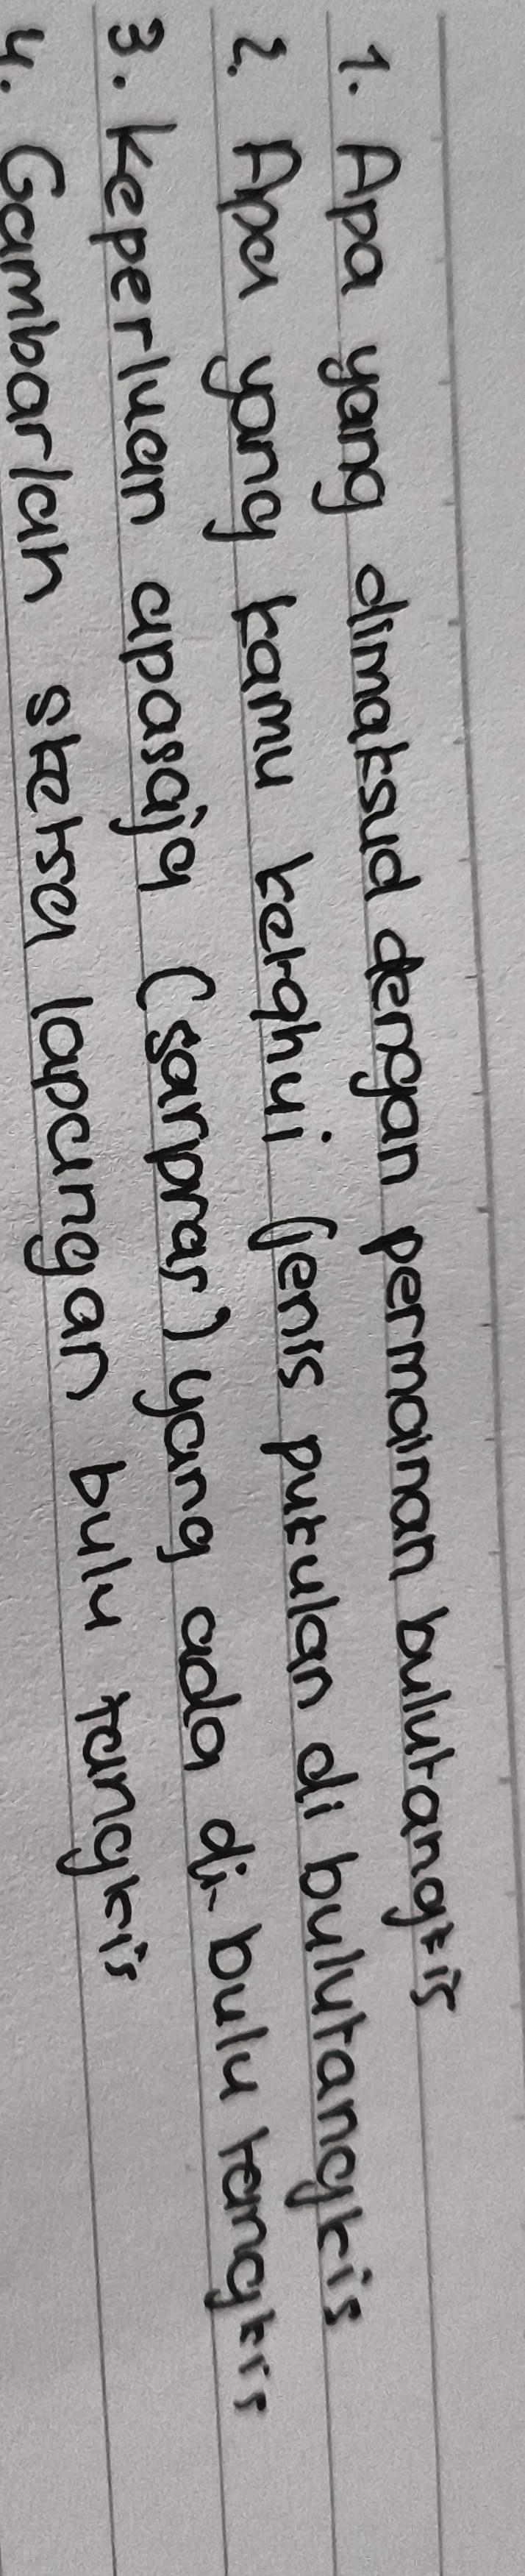 1. Apa yang dimaksud dengan permainan bulutangkis
2. Apa yang kamu ketahui jenis pukulan di bulutangkis
3. keperluan apasaja (sarpras) yang ada di bulu tangkis
4. Gambarlah sketsa lapangan bulu tangkis